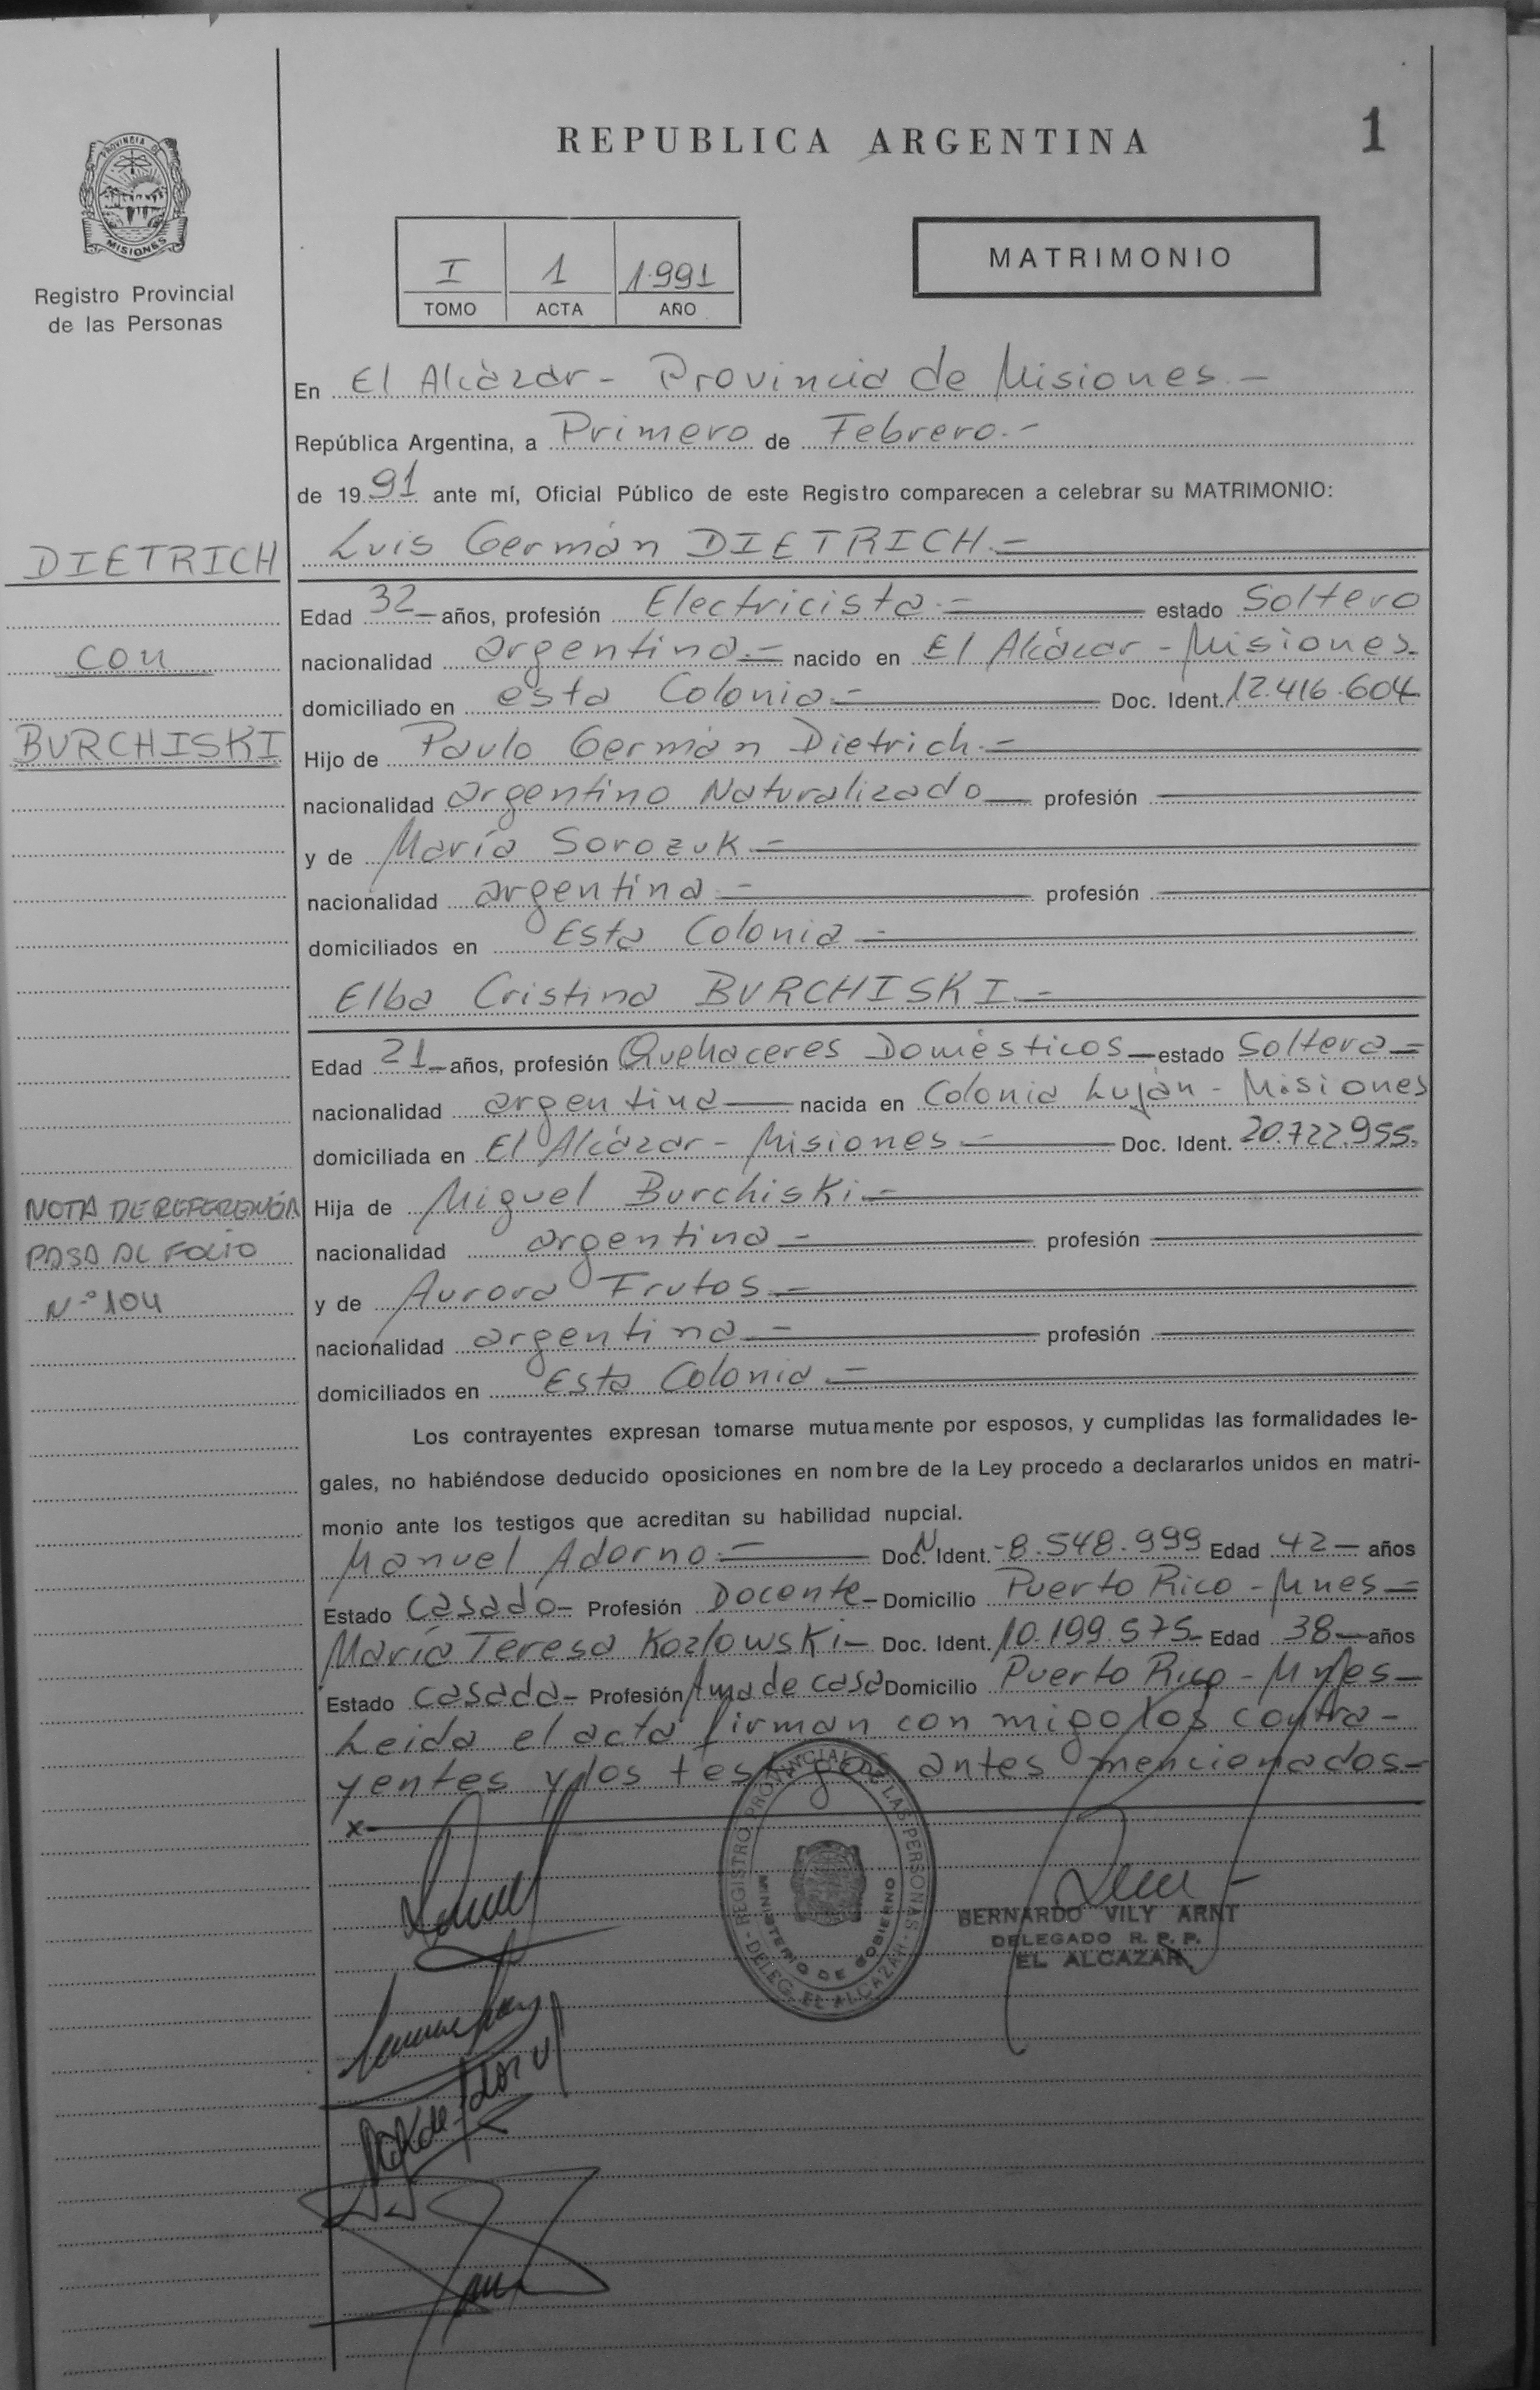 REPUBLICA ARGENTINA
1
PROVINCIA DE
MISIONES
Registro Provincial
de las Personas
I 1 1.991
TOMO ACTA AÑO
MATRIMONIO
En El Alcàzar - Provincia de Misiones.-
República Argentina, a Primero de Febrero.-
de 1991 ante mí, Oficial Público de este Registro comparecen a celebrar su MATRIMONIO:
DIETRICH
con
BURCHISKI
Luis Germán DIETRICH.-
Edad 32- años, profesión Electricista.- estado Soltero
nacionalidad argentina.- nacido en El Alcázar - Misiones.
domiciliado en esta Colonia.- Doc. Ident. 12.416.604
Hijo de Paulo Germán Dietrich.-
nacionalidad argentino Naturalizado profesión
y de María Sorozuk.-
nacionalidad argentina.- profesión
domiciliados en Esta Colonia.-
Elba Cristina BURCHISKI.-
Edad 21- años, profesión Quehaceres Domésticos- estado Soltera-
nacionalidad argentina nacida en Colonia Luján - Misiones
domiciliada en El Alcázar - Misiones.- Doc. Ident. 20.722.955.
Hija de Miguel Burchiski.-
nacionalidad argentina.- profesión
y de Aurora Frutos.-
nacionalidad argentina.- profesión
domiciliados en Esta Colonia.-
NOTA DE REFERENCIA
PASA AL FOLIO
N-º 104
Los contrayentes expresan tomarse mutuamente por esposos, y cumplidas las formalidades le-
gales, no habiéndose deducido oposiciones en nombre de la Ley procedo a declararlos unidos en matri-
monio ante los testigos que acreditan su habilidad nupcial.
Manuel Adorno.- Doc. N Ident. -8.548.999 Edad 42- años
Estado Casado- Profesión Docente- Domicilio Puerto Rico - Mnes-
María Teresa Kozlowski- Doc. Ident. 10.199.575- Edad 38- años
Estado Casada- Profesión Ama de casa Domicilio Puerto Rico - Mnes-
Leida el acta firman con migo los contra-
yentes y los testigos antes mencionados-
x
REGISTRO PROVINCIAL DE LAS PERSONAS - DELEG. EL ALCAZAR -
MINISTERIO DE GOBIERNO
BERNARDO VILY ARNT
DELEGADO R. P. P.
EL ALCAZAR